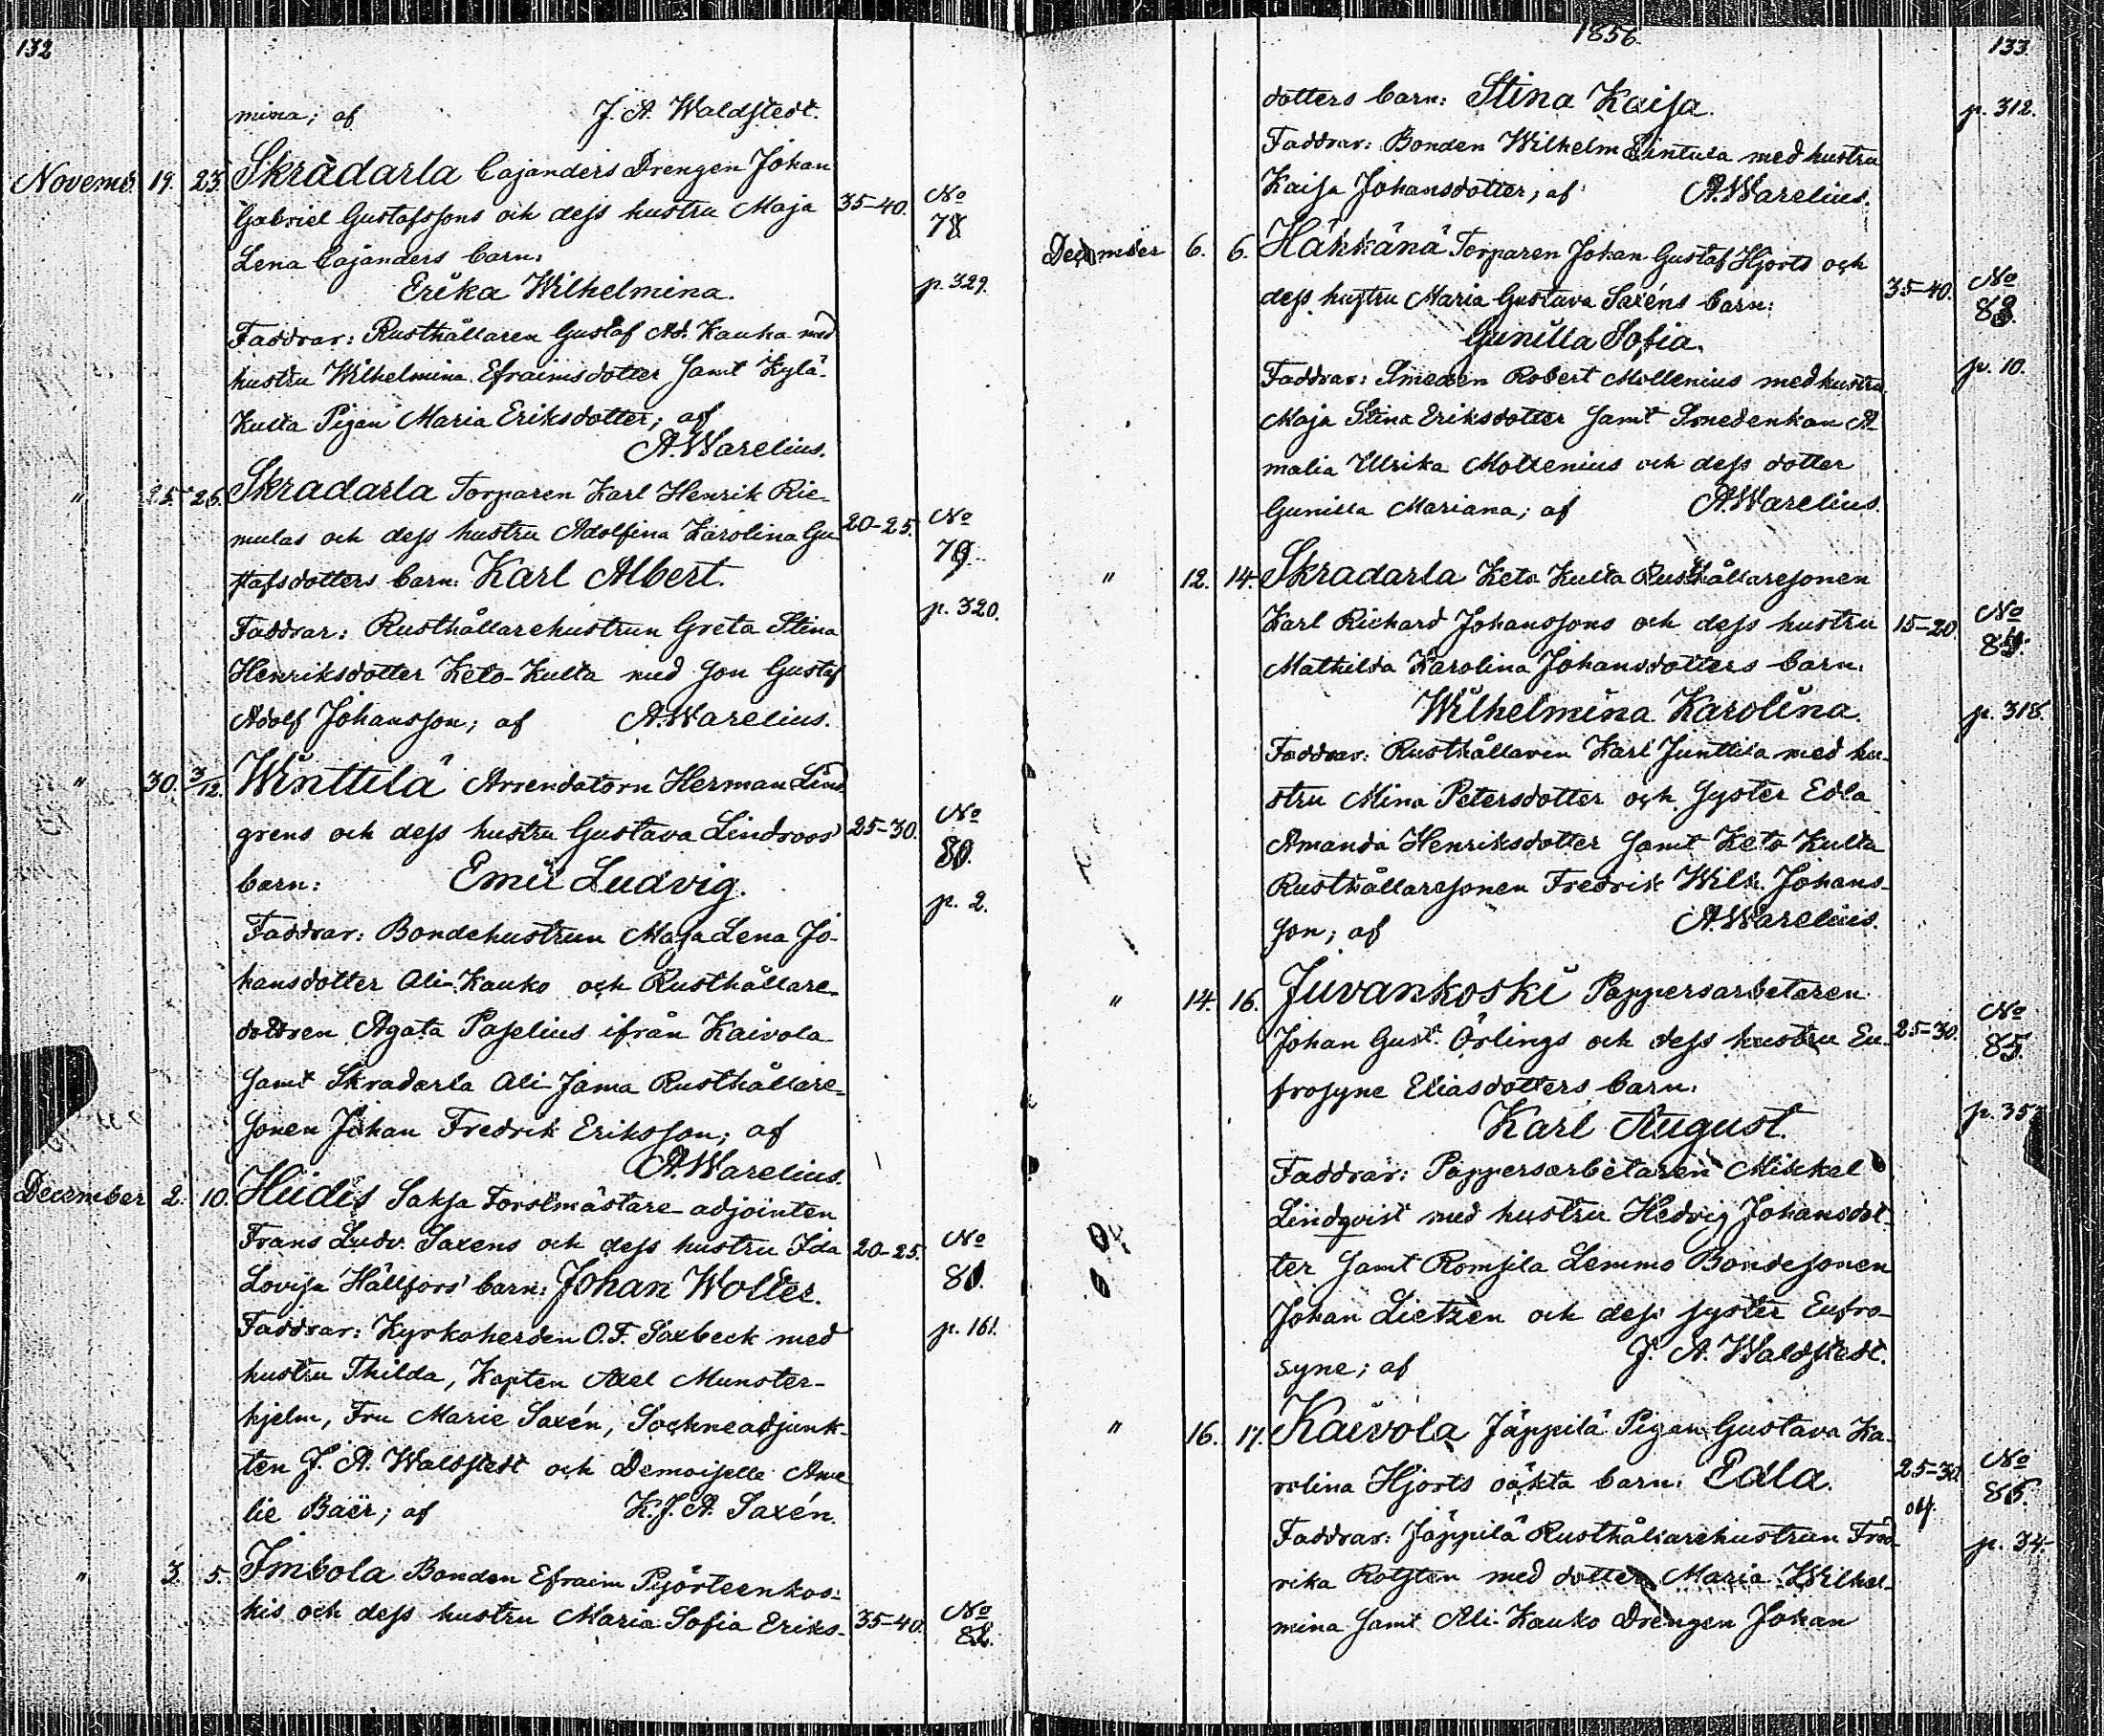 132
mina; af J. A. Waldstedt.
Novemb. 19. 23. Skrädarla Cajanders Drengen Johan
Gabriel Gustafssons och dess hustru Maja 35-40. No 78.
Lena Cajanders barn:
Erika Wilhelmina. p. 329.
Faddrar: Rusthållaren Gustaf Ad. Kauha med
hustru Wilhelmina Efraimsdotter samt Kylä-
Kulta Pigan Maria Eriksdotter; af
A. Warelius.
" 25. 26. Skradarla Torparen Karl Henrik Rie-
mulas och dess hustru Adolfina Karolina Gu- 20-25. No 79.
stafsdotters barn: Karl Albert.
p. 320.
Faddrar: Rusthållarehustrun Greta Stina
Henriksdotter Keto-Kulta med son Gustaf
Adolf Johansson; af A. Warelius.
" 30. 3/12. Winttilä Arrendatorn Herman Lind-
grens och dess hustru Gustava Lindroos' 25-30. No 80.
barn: Emil Ludvig.
p. 2.
Faddrar: Bondehustrun Maja Lena Jo-
hansdotter Ali-Kauko och Rusthållare-
dottren Agata Paselius ifrån Kaivola
samt Skradarla Ali-Jama Rusthållare-
sonen Johan Fredrik Eriksson; af
A. Warelius.
December 2. 10. Hiidis Saksa Forstmästare-adjointen
Frans Ludv. Saxens och dess hustru Ida 20-25. No 81.
Lovisa Hällfors' barn: Johan Wolter.
Faddrar: Kyrkoherden O. F. Saxbeck med p. 161.
hustru Thilda, Kapten Axel Munster-
hjelm, Fru Marie Saxén, Sockneadjunk-
ten J. A. Waldstedt och Demoiselle Ame
lie Baër; af K. J. A. Saxén.
" 3. 5. Imbola Bonden Efraim Pyörteenkos-
kis och dess hustru Maria Sofia Eriks- 35-40. No 82.
1856. 133.
dotters barn: Stina Kaisa. p. 312.
Faddrar: Bonden Wilhelm Sintula med hustru
Kaisa Johansdotter; af A. Warelius.
December 6. 6. Häkkänä Torparen Johan Gustaf Hjorts och
dess hustru Maria Gustava Saxéns barn: 35-40. No 83.
Gunilla Sofia.
Faddrar: Smeden Robert Mollenius med hustru p. 10.
Maja Stina Eriksdotter samt Smedenkan A-
malia Ulrika Mollenius och dess dotter
Gunilla Mariana; af A. Warelius.
" 12. 14. Skradarla Keto Kulta Rusthållaresonen
Karl Richard Johanssons och dess hustru 15-20 No 84.
Mathilda Karolina Johansdotters barn:
Wilhelmina Karolina. p. 318.
Faddrar: Rusthållaren Karl Junttila med hu-
stru Mina Petersdotter och syster Edla
Amanda Henriksdotter samt Keto Kulta
Rusthållaresonen Fredrik Wilh. Johans-
son; af A. Warelius.
" 14. 16. Juvankoski Pappersarbetaren
Johan Gust. Örlings och dess hustru Eu- 25-30. No 85.
frosyne Eliasdotters barn:
Karl August. p. 35
Faddrar: Pappersarbetaren Mikkel
Lindqvist med hustru Hedvig Johansdot-
ter samt Romsila Lemmo Bondesonen
Johan Lietzén och dess syster Eufro-
syne; af J. A. Waldstedt.
" 16. 17. Kaivola Jäppilä Pigan Gustava Ka-
rolina Hjorts oäkta barn: Edla. 25-30. No 86.
Faddrar: Jäppilä Rusthållarehustrun Fred- p. 34.
rika Rotsten med dotter Maria Wilhel-
mina samt Ali-Kauko Drengen Johan